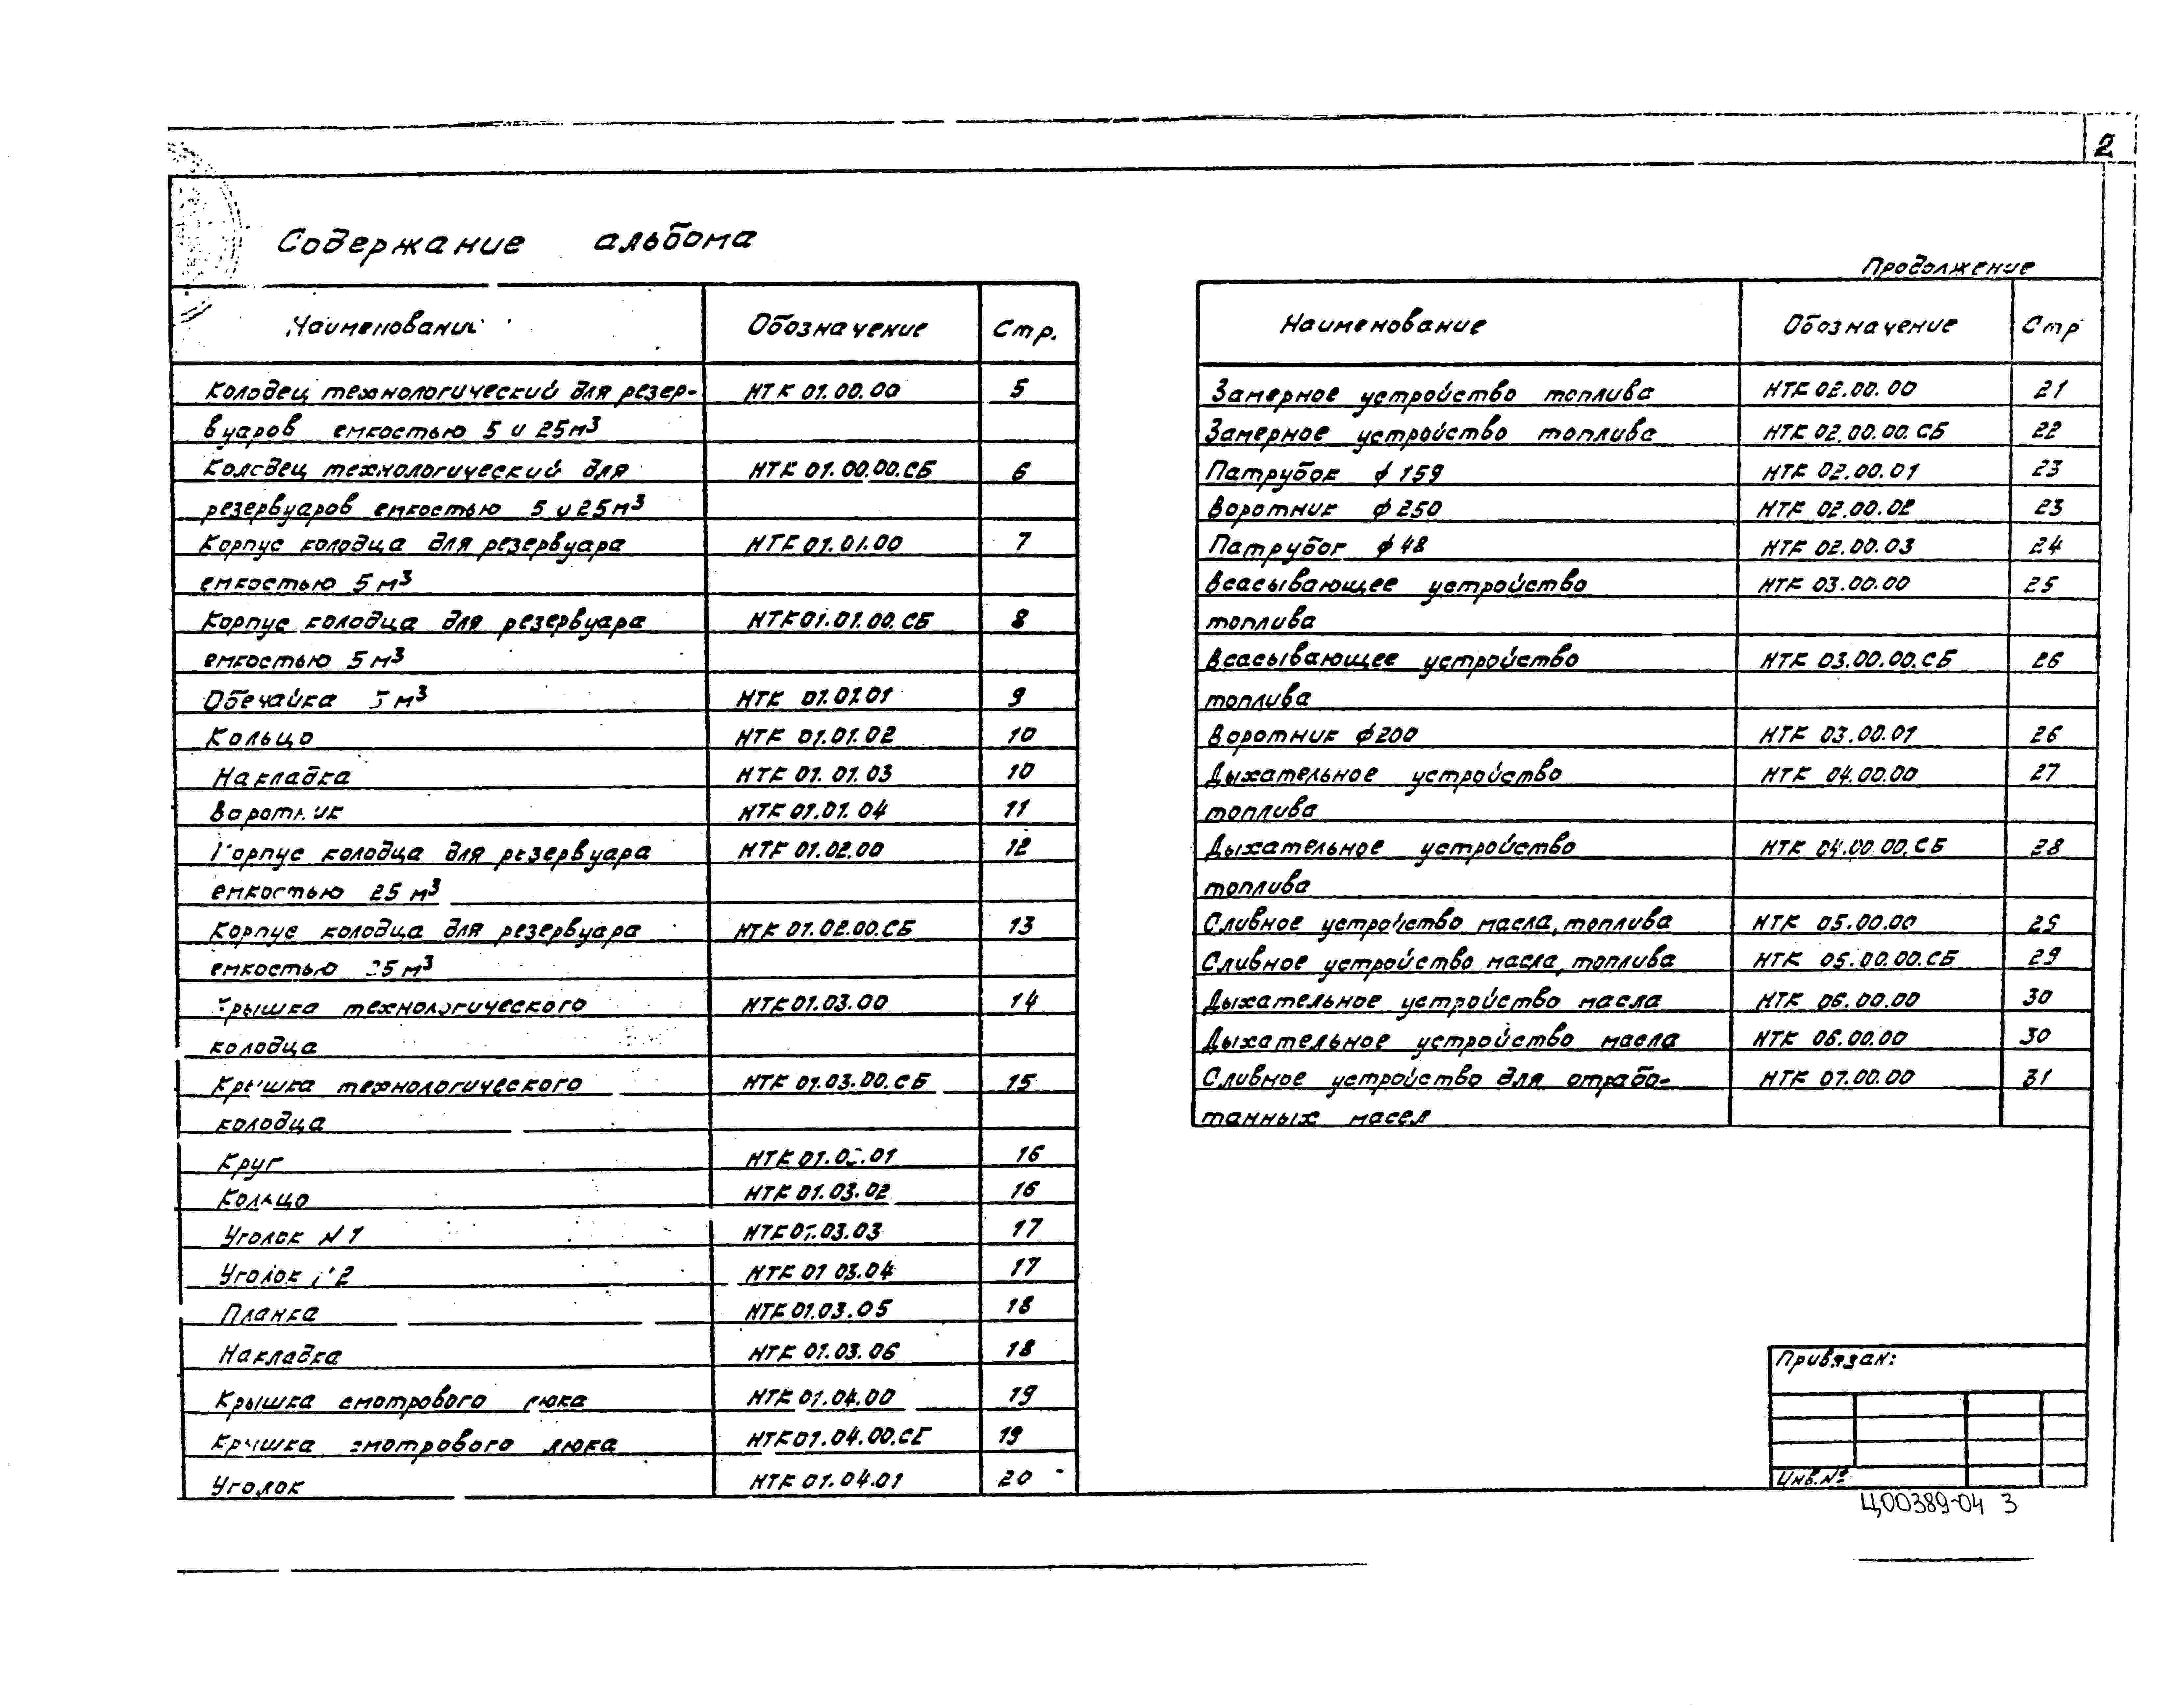 2
Содержание альбома
Наименование Обозначение Стр.
Колодец технологический для резер- НТК 01.00.00 5
вуаров емкостью 5 и 25м³
Колодец технологический для НТК 01.00.00.СБ 6
резервуаров емкостью 5 и 25м³
Корпус колодца для резервуара НТК 01.01.00 7
емкостью 5м³
Корпус колодца для резервуара НТК 01.01.00.СБ 8
емкостью 5м³
Обечайка 5м³ НТК 01.01.01 9
Кольцо НТК 01.01.02 10
Накладка НТК 01.01.03 10
Воротник НТК 01.01.04 11
Корпус колодца для резервуара НТК 01.02.00 12
емкостью 25м³
Корпус колодца для резервуара НТК 01.02.00.СБ 13
емкостью 25м³
Крышка технологического НТК 01.03.00 14
колодца
Крышка технологического НТК 01.03.00.СБ 15
колодца
Круг НТК 01.03.01 16
Кольцо НТК 01.03.02 16
Уголок N1 НТК 01.03.03 17
Уголок N2 НТК 01 03.04 17
Планка НТК 01.03.05 18
Накладка НТК 01.03.06 18
Крышка смотрового люка НТК 01.04.00 19
Крышка смотрового люка НТК 01.04.00.СБ 19
Уголок НТК 01.04.01 20
Продолжение
Наименование Обозначение Стр
Замерное устройство топлива НТК 02.00.00 21
Замерное устройство топлива НТК 02.00.00.СБ 22
Патрубок ф159 НТК 02.00.01 23
Воротник ф250 НТК 02.00.02 23
Патрубок ф48 НТК 02.00.03 24
Всасывающее устройство НТК 03.00.00 25
топлива
Всасывающее устройство НТК 03.00.00.СБ 26
топлива
Воротник ф200 НТК 03.00.01 26
Дыхательное устройство НТК 04.00.00 27
топлива
Дыхательное устройство НТК 04.00.00.СБ 28
топлива
Сливное устройство масла, топлива НТК 05.00.00 25
Сливное устройство масла, топлива НТК 05.00.00.СБ 29
Дыхательное устройство масла НТК 06.00.00 30
Дыхательное устройство масла НТК 06.00.00 30
Сливное устройство для отрабо- НТК 07.00.00 31
танных масел
Привязан:
Инв.№
Ц00389-04 3